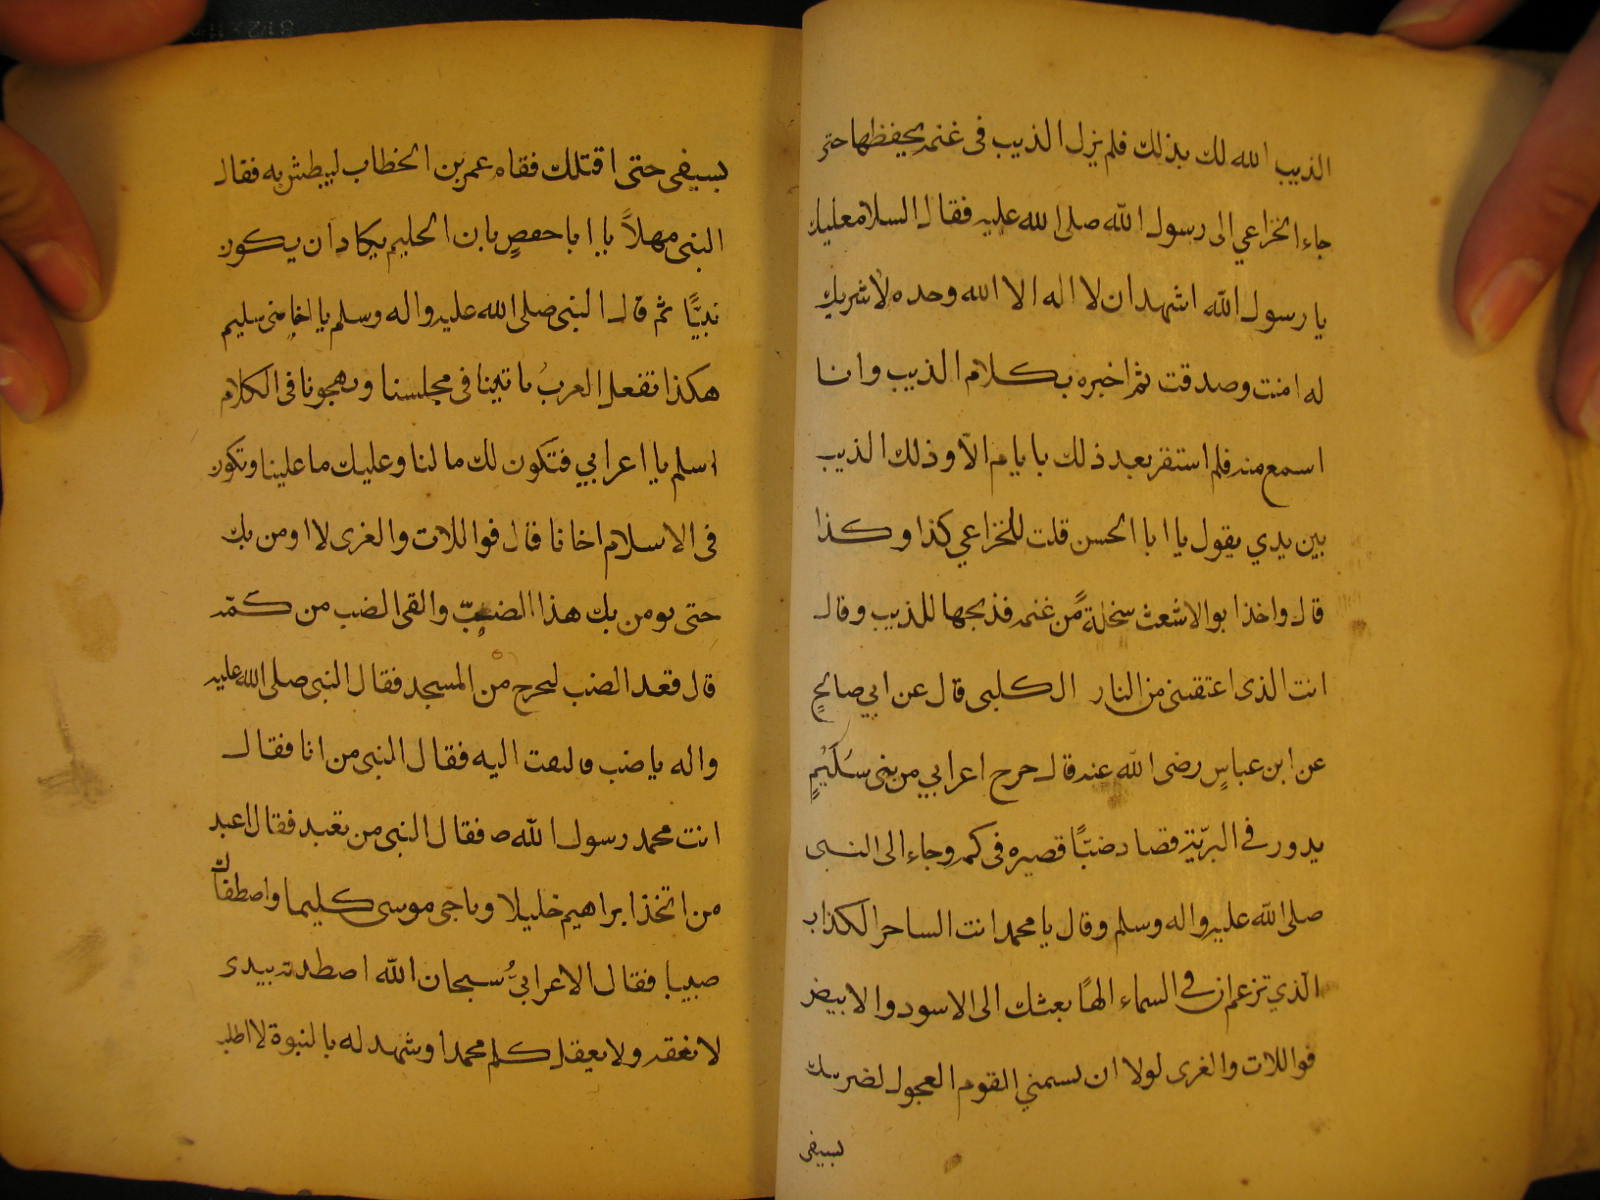 الذيب الله لك بذلك فلم يزل الذيب فى غنمه يحفظها حتى
جاء الخزاعي الى رسول الله صلى الله عليه فقال السلام عليك
يا رسول الله اشهد ان لا اله الا الله وحده لا شريك
له امنت وصدقت ثم اخبره بكلام الذيب وانا
اسمع منه فلم استقر بعد ذلك بايام الّا وذلك الذيب
بين يدي يقول يا ابا الحسن قلت للخزاعي كذا وكذا
قال واخذ ابو الاشعث سخلةً من غنمه فذبحها للذيب وقال
انت الذى اعتقتنى من النار الكلبى قال عن ابي صالحٍ
عن ابن عباسٍ رضى الله عنه قال خرج اعرابي من بنى سُلَيْمٍ
يدور في البرّية فصاد ضبّاً فصيره فى كمه وجاء الى النبى
صلى الله عليه واله وسلم وقال يا محمد انت الساحر الكذاب
الّذي تزعم ان في السماء الهًا بعثك الى الاسود والابيض
فو اللات والغرى لولا ان يسمني القوم العجول لضربتك
بسيفى
بسيفى حتى اقتلك فقام عمر بن الخطاب ليبطش به فقال
النبى مهلاً يا ابا حفصٍ يابن الحليم يكاد ان يكون
نبيًّا ثم قال النبى صلى الله عليه واله وسلم يا اخا بنى سليم
هكذا تفعل العربُ تاتينا فى مجلسنا وتهجونا فى الكلام
اسلم يا اعرابي فتكون لك ما لنا وعليك ما علينا وتكون
فى الاسلام اخانا قال فو اللات والغرى لا اومن بك
حتى يومن بك هذا الضبّ والقى الضب من كمّه
قال فعد الضب ليخرج من المسجد فقال النبى صلى الله عليه
واله يا ضب فالتفت اليه فقال النبى من انا فقال
انت محمد رسول الله ص فقال النبى من تعبد فقال اعبد
من اتخذ ابراهيم خليلا وناجى موسى كليما واصطفاك
صبيبا فقال الاعرابىُّ سبحان الله اصطدته بيدى
لا نفقه ولا يعقل كلم محمدا وشهد له بالنبوة لا اطلب